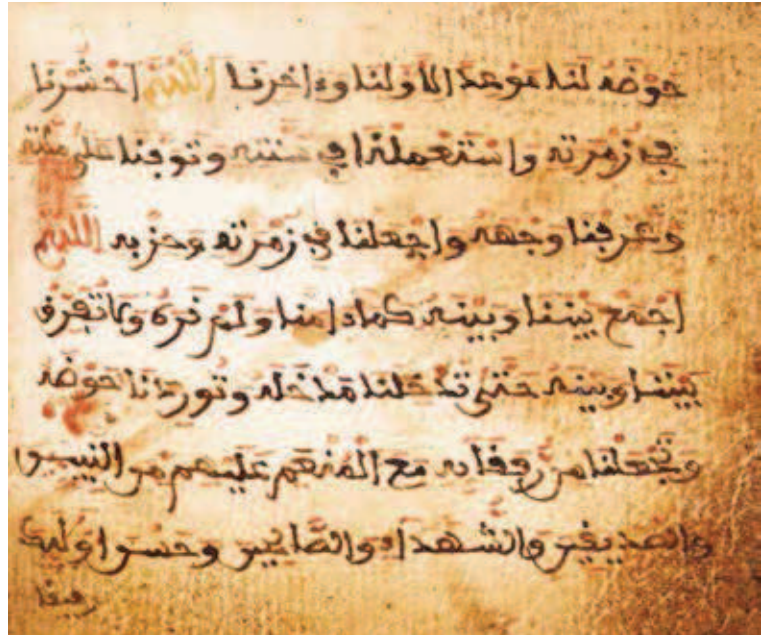 حوضه لنا موعدا لاولنا وءاخرنا اللهم احشرنا
في زمرته واستعملنا في سنته وتوفنا على ملته
وعرفنا وجهه واجعلنا في زمرته وحزبه اللهم
اجمع بيننا وبينه كما ءامنا ولم نره ولا تفرق
بيننا وبينه حتى تدخلنا مدخله وتوردنا حوضه
وتجعلنا من رفقائه مع المنعم عليهم من النبيين
والصديقين والشهداء والصالحين وحسن اولئك
رفيقا